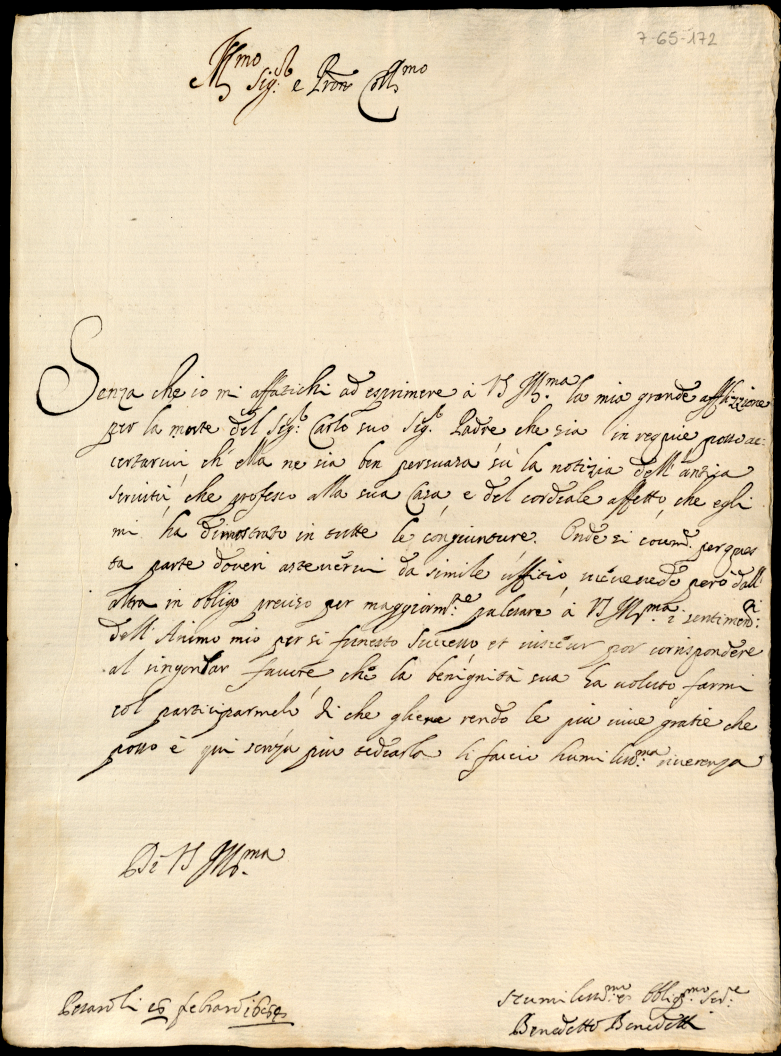 7-65-172
Ill.mo Sig.r e Pron Coll.mo
Senza che io mi affatichi ad esprimere à VS Ill.ma la mia grande afflizzione
per la morte del Sig.r Carlo suo Sig.r Padre che sia in requie posso ac:
certarmi ch' ella ne sia ben persuasa sù la notizia dell' antica
servitù che profesco alla sua Casa e del cordiale affetto che egli
mi ha dimostrato in tutte le congiunture. Onde si come per ques
ta parte doveri astenermi da simile uffitio, mi vedo però dall'
altra in obligo preciso per maggiorm.te palesare à VS Ill.ma i sentimen.ti
dell' Animo mio per si funesto successo et per corrispondere
al singolar favore che la benignità sua ha voluto farmi
col participarmelo di che gliene rendo le piu vive gratie che
posso e qui senza piu tediarla li faccio humiliss.ma riverenza
Di VS Ill.ma
febraro
Humiliss.mo et Obblig.mo Ser.e
Benedetto Benedetti